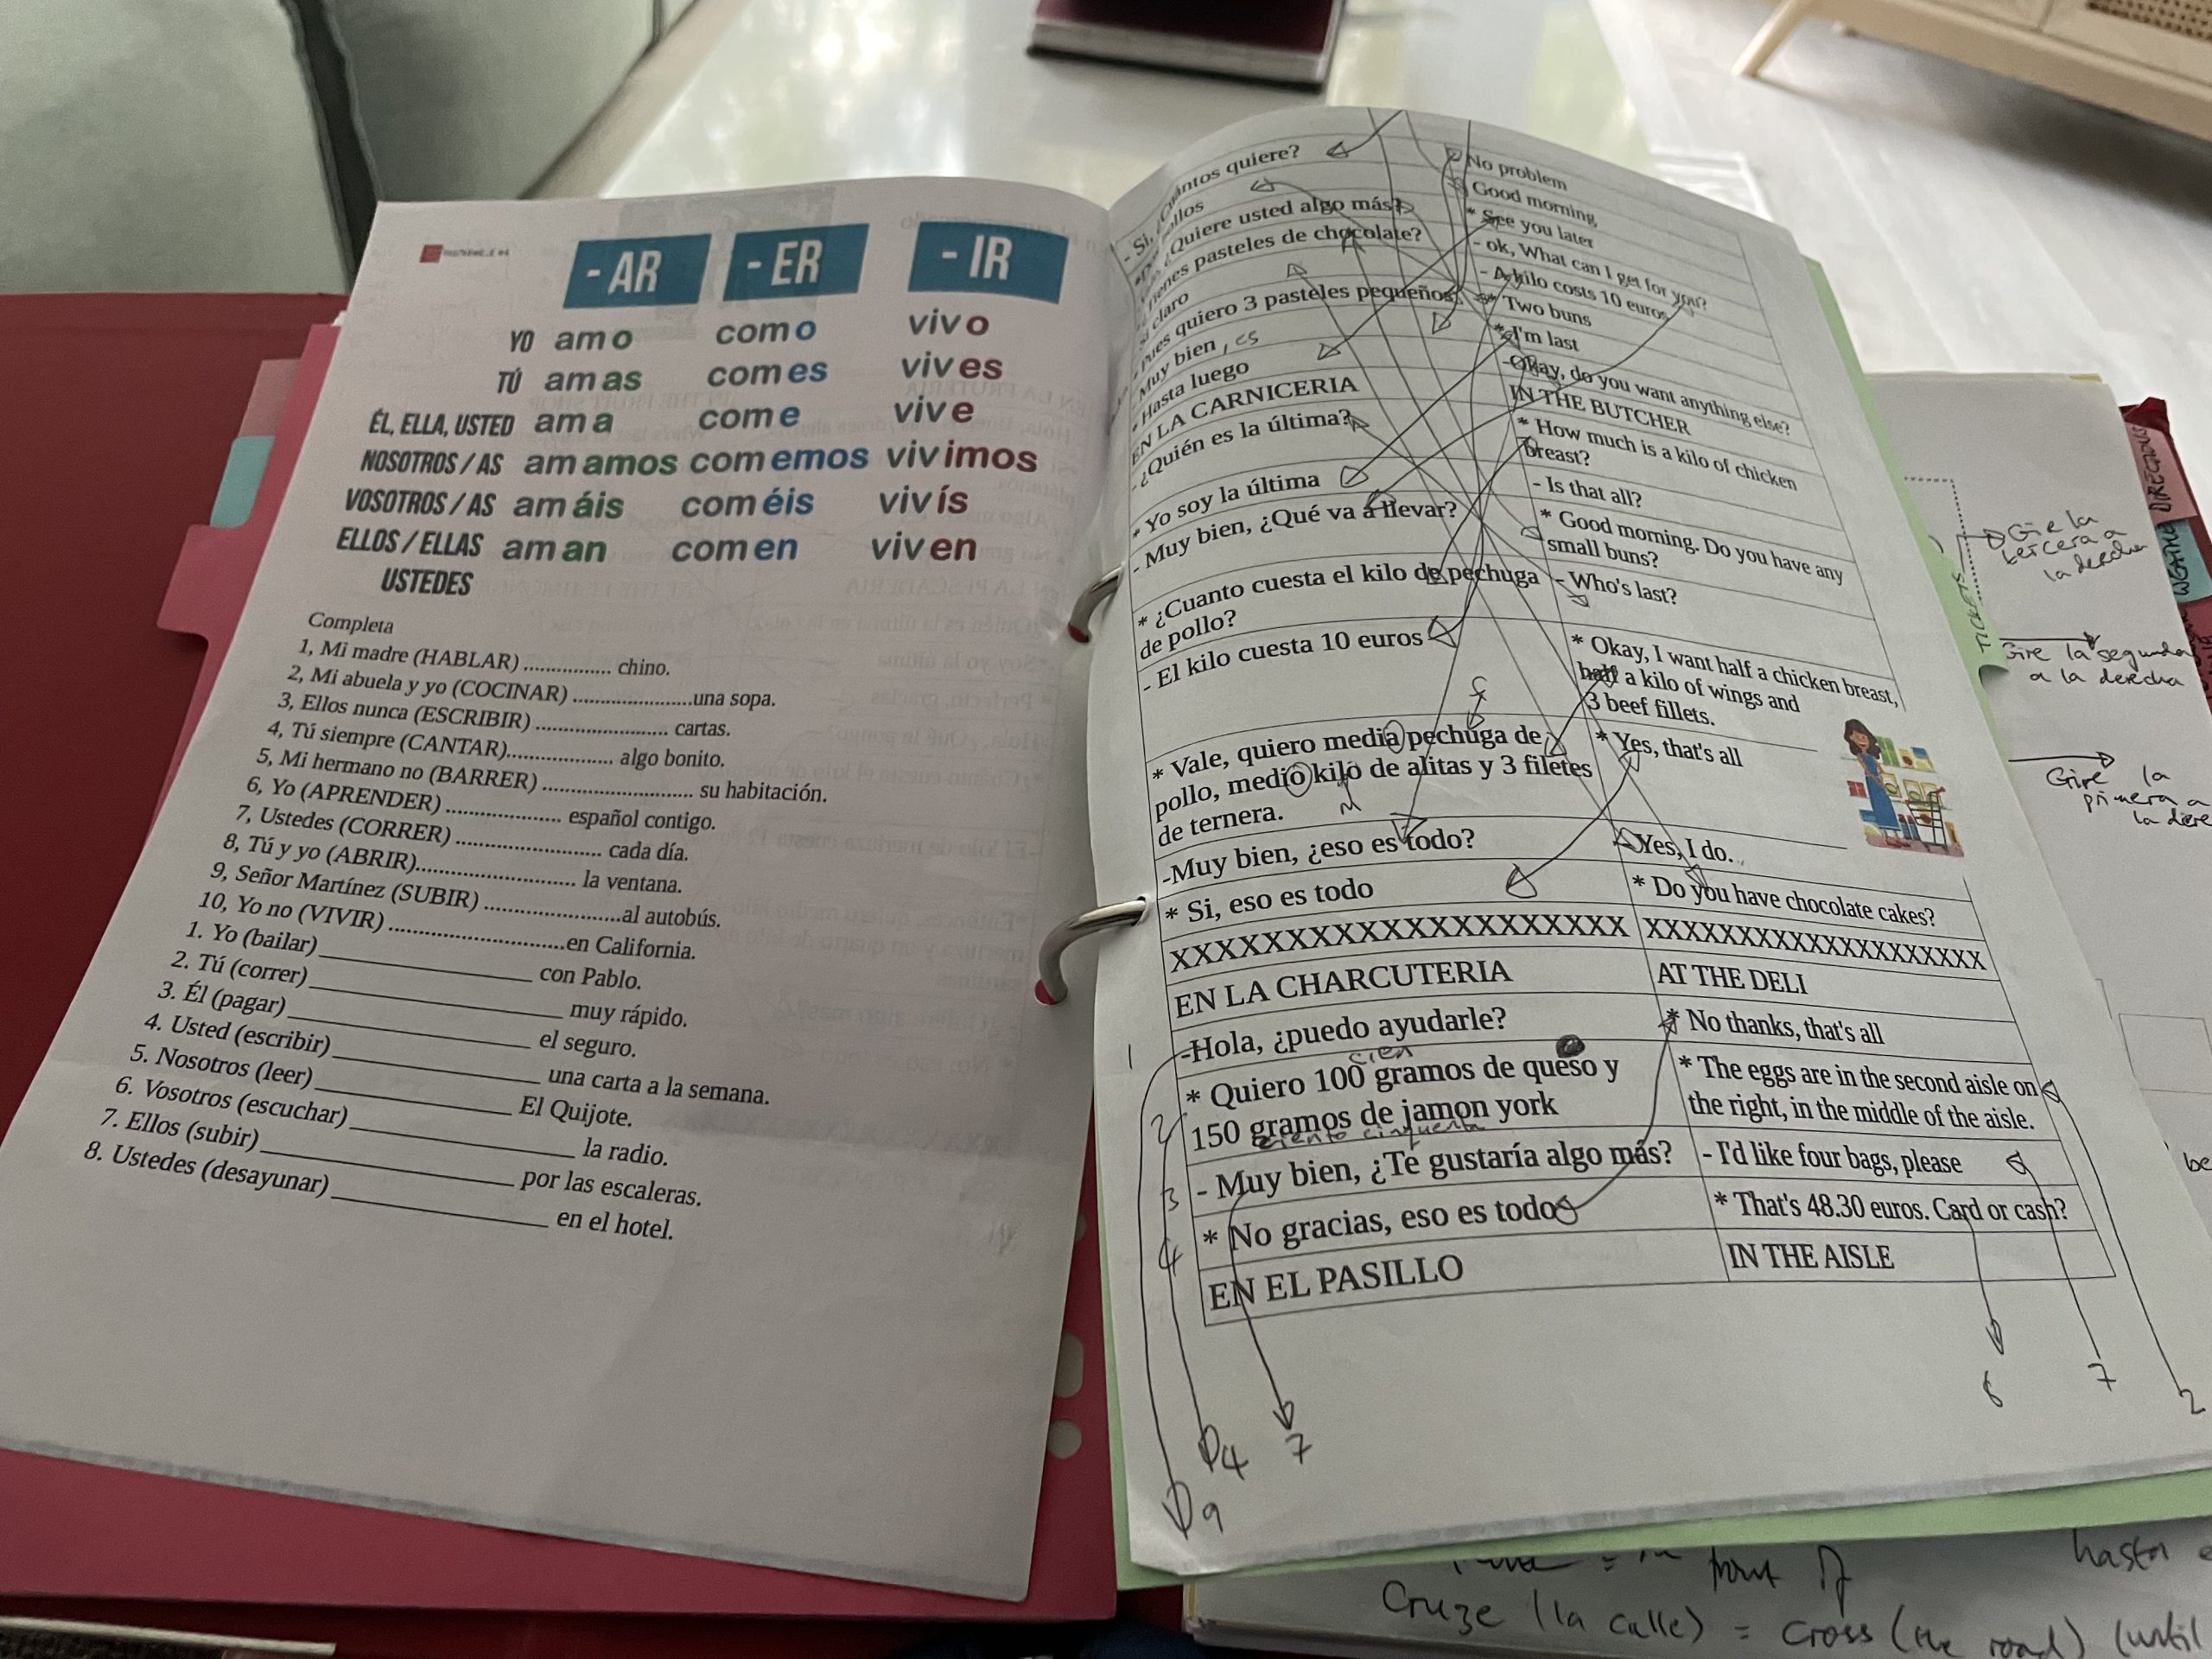 - AR - ER - IR
YO amo como vivo
TÚ amas comes vives
ÉL, ELLA, USTED ama come vive
NOSOTROS / AS amamos comemos vivimos
VOSOTROS / AS amáis coméis vivís
ELLOS / ELLAS aman comen viven
USTEDES
Completa
1, Mi madre (HABLAR) ............... chino.
2, Mi abuela y yo (COCINAR) .....................una sopa.
3, Ellos nunca (ESCRIBIR) ....................... cartas.
4, Tú siempre (CANTAR)................... algo bonito.
5, Mi hermano no (BARRER) .......................... su habitación.
6, Yo (APRENDER) .................... español contigo.
7, Ustedes (CORRER) ......................... cada día.
8, Tú y yo (ABRIR)............................ la ventana.
9, Señor Martínez (SUBIR) ........................al autobús.
10, Yo no (VIVIR) ...............................en California.
1. Yo (bailar)____________________ con Pablo.
2. Tú (correr)________________________ muy rápido.
3. Él (pagar)________________________ el seguro.
4. Usted (escribir)____________________ una carta a la semana.
5. Nosotros (leer)____________________ El Quijote.
6. Vosotros (escuchar)______________________ la radio.
7. Ellos (subir)________________________ por las escaleras.
8. Ustedes (desayunar)_____________________ en el hotel.
- Si, ¿Cuántos quiere?
¿Quiere usted algo más?
¿Tienes pasteles de chocolate?
Si claro
- Pues quiero 3 pasteles pequeños
- Muy bien , es
- Hasta luego
EN LA CARNICERIA
- ¿Quién es la última?
* Yo soy la última
- Muy bien, ¿Qué va a llevar?
* ¿Cuanto cuesta el kilo de pechuga
de pollo?
- El kilo cuesta 10 euros
f
* Vale, quiero media pechuga de
pollo, medio kilo de alitas y 3 filetes
m
de ternera.
-Muy bien, ¿eso es todo?
* Si, eso es todo
XXXXXXXXXXXXXXXXXXXXX
EN LA CHARCUTERIA
1 -Hola, ¿puedo ayudarle?
cien
2 * Quiero 100 gramos de queso y
150 gramos de jamon york
ciento cinquenta
3 - Muy bien, ¿Te gustaría algo más?
4 * No gracias, eso es todo
EN EL PASILLO
9
4
7
No problem
Good morning,
* See you later
- ok, What can I get for you?
- A kilo costs 10 euros
* Two buns
* I'm last
-Okay, do you want anything else?
IN THE BUTCHER
* How much is a kilo of chicken
breast?
- Is that all?
* Good morning. Do you have any
small buns?
- Who's last?
* Okay, I want half a chicken breast,
half a kilo of wings and
3 beef fillets.
* Yes, that's all
Yes, I do.
* Do you have chocolate cakes?
XXXXXXXXXXXXXXXXXXX
AT THE DELI
* No thanks, that's all
* The eggs are in the second aisle on
the right, in the middle of the aisle.
- I'd like four bags, please
* That's 48.30 euros. Card or cash?
IN THE AISLE
6
7
2
Gire la
tercera a
la derecha
Gire la segunda
a la derecha
Gire la
primera a
la dere
TICKETS
DIRECTIONS
be
= in front of
hasta
Cruze (la calle) = cross (the road) (until